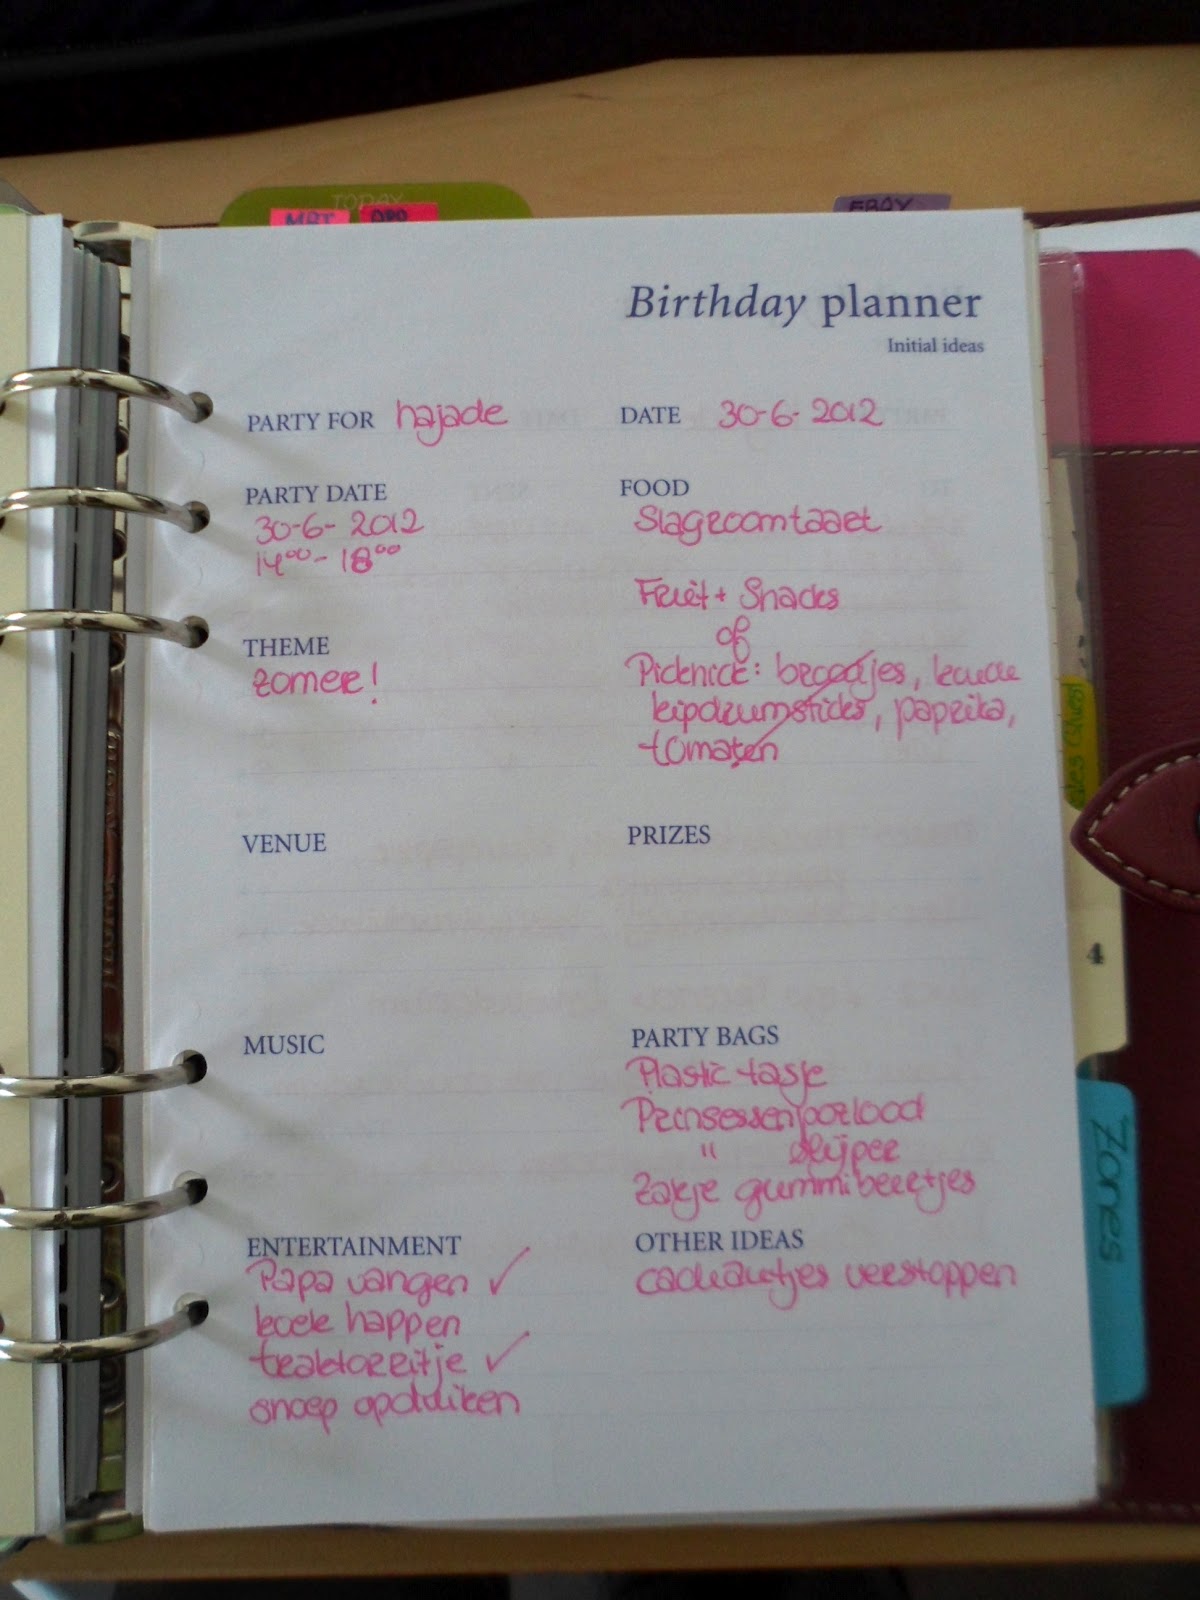 TODAY
MRT
EBAY
Birthday planner
Initial ideas
PARTY FOR hajade
DATE 30-6-2012
PARTY DATE
30-6-2012
14⁰⁰-18⁰⁰
THEME
zomer!
FOOD
Slagroomtaart
Fruit + Snacks
of
Picknick: broodjes, koude
kipdrumsticks, paprika,
tomaten
VENUE
PRIZES
MUSIC
PARTY BAGS
Plastic tasje
Prinsessenpotlood
" slijper
Zakje gummibeertjes
ENTERTAINMENT
Papa vangen ✓
koek happen
traktorritje ✓
snoep opduiken
OTHER IDEAS
cadeautjes verstoppen
4
Zones